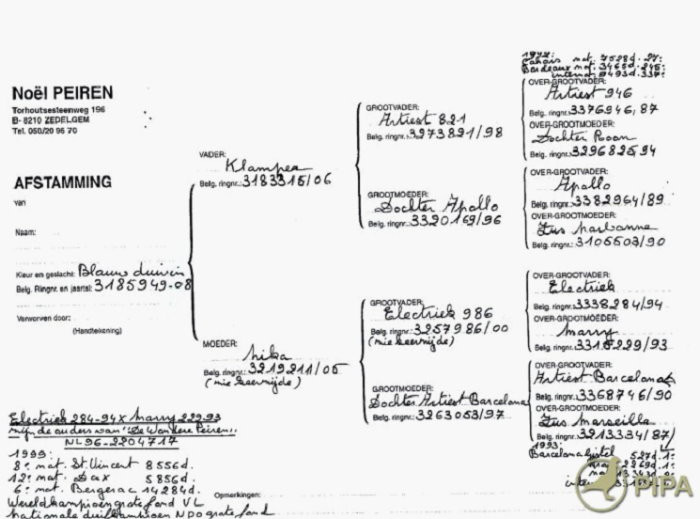 Noël PEIREN
Torhoutsesteenweg 196
B- 8210 ZEDELGEM
Tel. 050/20 96 70
AFSTAMMING
van
Naam:
Kleur en geslacht: Blauw duivin
Belg. Ringnr. en jaartal: 3185949-08
Verworven door:
(Handtekening)
Electriek 284-94 x Marry 229-93
zijn de ouders van "De Wondere Peiren"
NL 96-2204717
1999:
8e nat. St Vincent 8556d.
12e nat. Dax 5856d.
6e nat. Bergerac 14284d
Wereldkampioen grote fond VL
nationale duifkampioen NPO grote fond
Opmerkingen:
VADER:
Klamper
Belg. ringnr.: 3183315/06
MOEDER:
Nika
Belg. ringnr.: 3219211/05
(nie leermijde)
GROOTVADER:
Artiest 821
Belg. ringnr. 3273821/98
GROOTMOEDER:
Dochter Apollo
Belg. ringnr. 3320169/96
GROOTVADER:
Electriek 986
Belg. ringnr. 3257986/00
GROOTMOEDER:
Dochter Artiest Barcelona
Belg. ringnr. 3263053/97
OVER-GROOTVADER:
Artiest 946
Belg. ringnr.: 3376946,87
OVER-GROOTMOEDER:
Dochter
Belg. ringnr.: 3296825,94
OVER-GROOTVADER:
Apollo
Belg. ringnr.: 3382964/89
OVER-GROOTMOEDER:
Zus Narbonne
Belg. ringnr.: 3105503/90
OVER-GROOTVADER:
Electriek
Belg. ringnr.: 3338284/94
OVER-GROOTMOEDER:
Marry
Belg. ringnr.: 3315229/93
OVER-GROOTVADER:
Artiest Barcelona
Belg. ringnr.: 3368746/90
OVER-GROOTMOEDER:
Zus Marseille
Belg. ringnr.: 3213334/87
1993:
Barcelona
PIPA